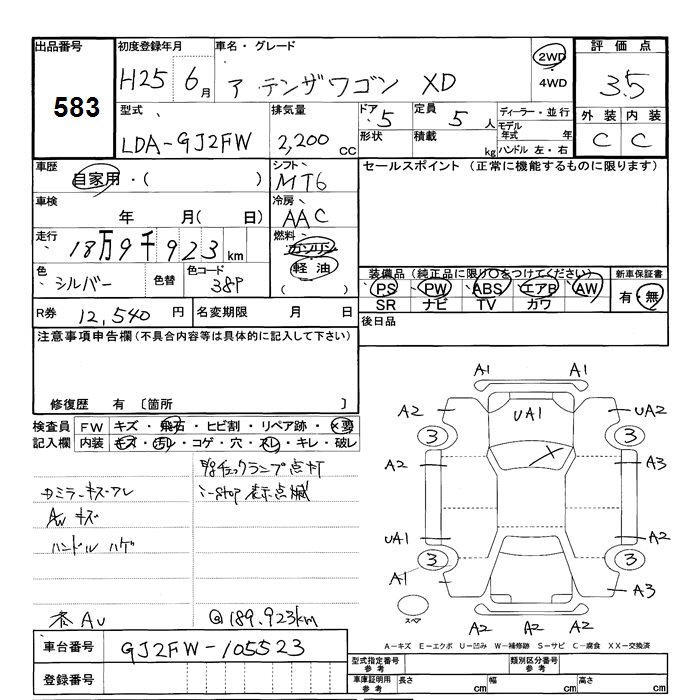 出品番号 初度登録年月 車名・グレード 評価点
583 H25 6月 アテンザワゴン XD 2WD 4WD 3.5
型式 排気量 ドア 定員 ディーラー・並行 外装 内装
LDA-GJ2FW 2,200cc 5 5人 モデル年式 年 C C
形状 積載 kg ハンドル 左・右
車歴 自家用・( ) シフト MT6 セールスポイント (正常に機能するものに限ります)
車検 年 月( 日) 冷房 AAC
走行 18万9千923km 燃料 ガソリン 軽油 ( )
色 シルバー 色替 色コード 38P
装備品(純正品に限り○をつけてください) 新車保証書
PS PW ABS エアB AW 有・無
SR ナビ TV カワ
R券 12,540円 名変期限 月 日 後日品
注意事項申告欄(不具合内容等は具体的に記入して下さい)
修復歴 有 〔箇所 〕
検査員記入欄 FW キズ・飛石・ヒビ割・リペア跡・×要
内装 キズ・汚レ・コゲ・穴・スレ・キレ・破レ
チェックランプ点灯
i-stop 表示点滅
AW キズ
ハンドル ハゲ
@189,923km
A1 A1
A2 UA1 UA2
3 3
A2 X A3
UA1 A2
3 3
A1 A3
スペア
A2 A2 A2
A－キズ E－エクボ U－凹み W－補修跡 S－サビ C－腐食 XX－交換済
車台番号 GJ2FW-105523
登録番号
型式指定番号 参考 類別区分番号 参考
車庫証明用 参考 長さ cm 幅 cm 高さ cm